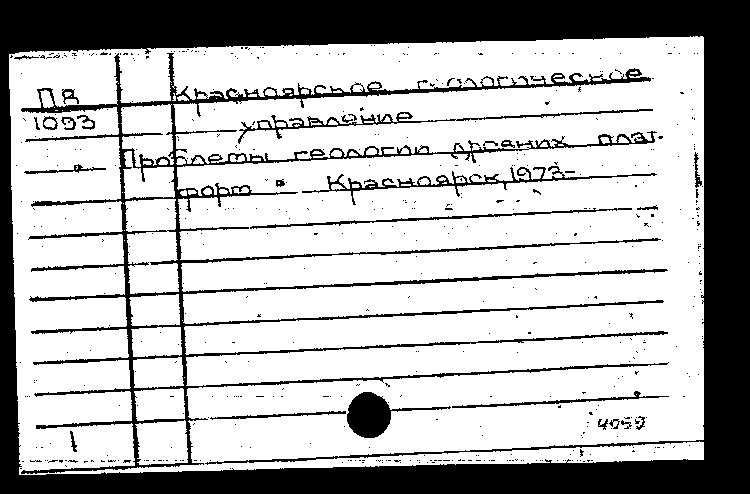 ПВ Красноярское геологическое
1093 управление
Проблемы геологии древних плат-
форм - Красноярск, 1973-
1
4059